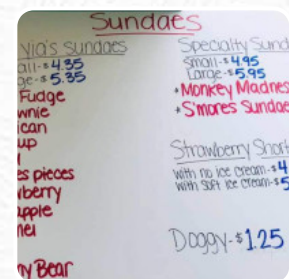 Sundaes
via's Sundaes
all-$4.35
ge-$5.35
Fudge
wnie
ican
up
es pieces
wberry
apple
mel
ny Bear
Specialty Sund
Small-$4.95
Large-$5.95
Monkey Madnes
S'mores Sundae
Strawberry Short
with no ice cream-$4
with soft ice cream-$5
Doggy-$1.25